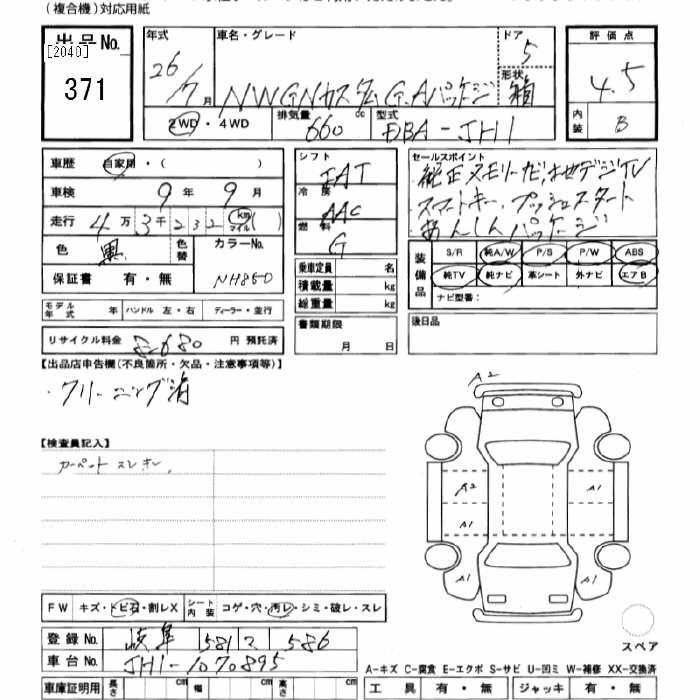 (複合機)対応用紙
出品No.
[2040]
371
年式
26/7月
車名・グレード
NWGNカスタム G.Aパッケージ
ドア
5
形状
箱
評価点
4.5
内装
B
2WD・4WD
排気量
660 cc
型式
DBA-JH1
車歴 自家用・( )
車検 9年 9月
走行 4万3千232 km マイル ( )
色 黒
色替
カラーNo.
NH850
保証書 有・無
モデル年式 年
ハンドル 左・右
ディーラー・並行
リサイクル料金 8,680 円 預託済
シフト
FAT
冷房
AAC
燃料
G
乗車定員 名
積載量 kg
総重量 kg
書類期限
月 日
セールスポイント
純正メモリーナビ,フルセグデジTV
スマートキー、プッシュスタート
あんしんパッケージ
装備品
S/R 純A/W P/S P/W ABS
純TV 純ナビ 革シート 外ナビ エアB
ナビ型番:
後日品
【出品店申告欄(不良箇所・欠品・注意事項等)】
・クリーニング済
【検査員記入】
カーペットスレ
A2
A2
A1
A1
A1
A1
A1
FW キズ・トビ石・割レX
シート内装 コゲ・穴・汚レ・シミ・破レ・スレ
登録No. 岐阜 581 マ 586
車台No. JH1-1070895
車庫証明用 長さ cm 幅 cm 高さ cm
スペア
A-キズ C-腐食 E-エクボ S-サビ U-凹ミ W-補修 XX-交換済
工具 有・無 ジャッキ 有・無